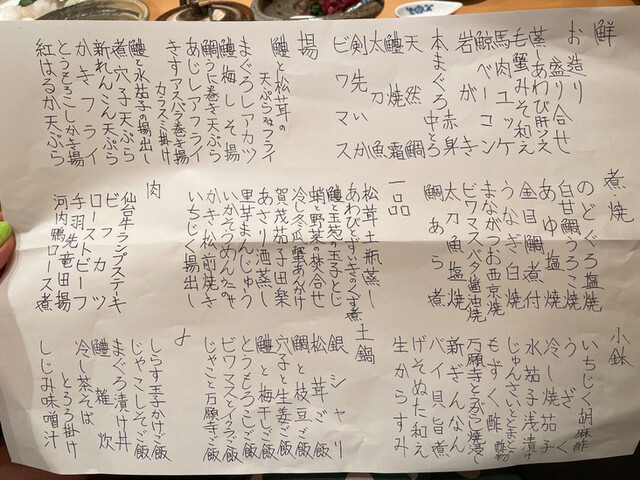 鮮
お造り盛り合せ
蒸しあわび肝ソース
毛蟹みそ和え
馬肉ユッケ
鯨ベーコン
岩がき
本まぐろ 赤身
中とろ
天然鯛
鱧焼霜
太刀魚
剣先いか
ビワマス
揚
鱧と松茸の
天ぷら又はフライ
まぐろレアカツ
鱧梅しそ揚
鯛うに巻き天ぷら
あじレアフライ
きすアスパラ巻き揚
カラスミ掛け
鱧と水茄子の揚出し
煮穴子天ぷら
新れんこん天ぷら
かきフライ
とうもろこしかき揚
紅はるか天ぷら
煮焼
のどぐろ塩焼
白甘鯛うろこ焼
あゆ塩焼
金目鯛煮付
うなぎ白焼
まながつお西京焼
ビワマスバタ醤油焼
太刀魚塩焼
鯛あら煮
一品
松茸土瓶蒸し
あわびとずいきのくず煮
鱧と玉葱の玉子とじ
蛸と野菜の焚合せ
冷し冬瓜蟹あんかけ
賀茂茄子田楽
あさり酒蒸し
里芋まんじゅう
いかそうめん
かき松前焼き
いちじく揚出し
肉
仙台牛ランプステーキ
ビフカツ
ローストビーフ
手羽先竜田揚
河内鴨ロース煮
小鉢
いちじく胡麻酢
うざく
冷し焼茄子
水茄子浅漬け
じゅんさいとトマト酢物
もずく酢
万願寺とうがらし焼浸し
新ぎんなん
バイ貝旨煮
げそぬた和え
生からすみ
土鍋
銀シャリ
松茸ご飯
鯛と枝豆ご飯
穴子と生姜ご飯
鱧と梅干しご飯
とうもろこしご飯
ビワマスとイクラご飯
じゃこと万願寺ご飯
〆
しらす玉子かけご飯
じゃこしそご飯
まぐろ漬け丼
鱧雑炊
冷し茶そば
とろろ掛け
しじみ味噌汁